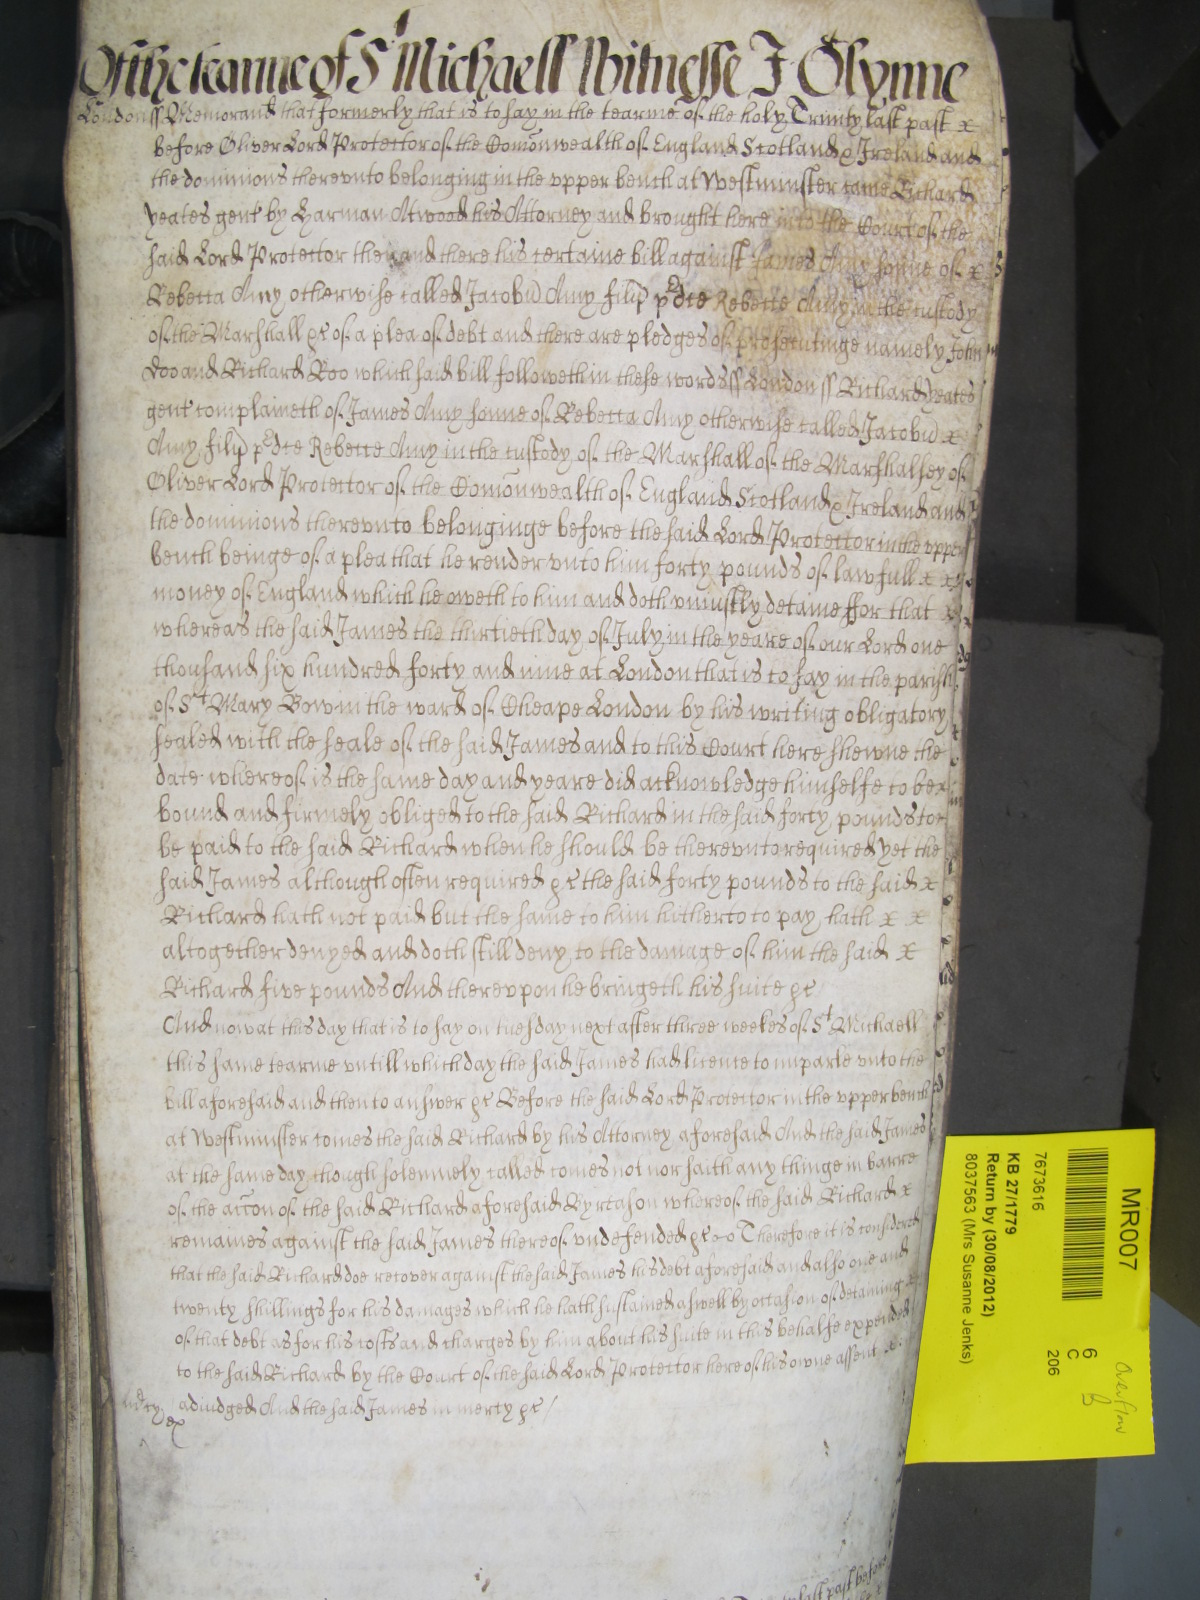 Of the tearme of St Michaell Witnesse J Glynne
London ss Memorand that formerly that is to say in the tearme of the holy Trinity last past x
before Oliver Lord Protector of the Comonwealth of England Scotland & Ireland and
the dominions therevnto belonging in the vpper bench at Westminster came Richard
Yeates gent by Harman Atwood his Attorney and brought here into the Court of the
said Lord Protector then and there his certaine bill against James Amy sonne of x
Rebecca Amy otherwise called Jacobu Amy filiu pdce Rebecce Amy in the custody
of the Marshall &c of a plea of debt and there are pledges of prosecutinge namely John
Doo and Richard Roo which said bill followeth in these words ss London ss Richard Yeates
gent complaineth of James Amy sonne of Rebecca Amy otherwise called Jacobu x
Amy filiu pdce Rebecce Amy in the custody of the Marshall of the Marshalsey of
Oliver Lord Protector of the Comonwealth of England Scotland & Ireland and
the dominions therevnto belonginge before the said Lord Protector in the vpper
bench beinge of a plea that he render vnto him forty pounds of lawfull x x
money of England which he oweth to him and doth vniustly detaine ffor that x
whereas the said James the thirtieth day of July in the yeare of our Lord one
thousand six hundred forty and nine at London that is to say in the parish
of St Mary Bow in the ward of Cheape London by his writing obligatory
sealed with the seale of the said James and to this Court here shewne the
date whereof is the same day and yeare did acknowledge himselfe to be x
bound and firmely obliged to the said Richard in the said forty pounds to
be paid to the said Richard when he should be therevnto required yet the
said James although often required &c the said forty pounds to the said x
Richard hath not paid but the same to him hitherto to pay hath x x
altogether denyed and doth still deny to the damage of him the said x
Richard five pounds And therevpon he bringeth his suite &c
And now at this day that is to say on tuesday next after three weekes of St Michaell
this same tearme vntill which day the said James had licence to imparle vnto the
bill aforesaid and then to answer &c Before the said Lord Protector in the vpper bench
at Westminster comes the said Richard by his Attorney aforesaid And the said James
at the same day though solemnely called comes not nor saith any thinge in barre
of the accon of the said Richard aforesaid By reason whereof the said Richard x
remaines against the said James thereof vndefended &c Therefore it is considered
that the said Richard doe recover against the said James his debt aforesaid and also one and
twenty shillings for his damages which he hath sustained aswell by occasion of detaining
of that debt as for his costs and charges by him about his suite in this behalfe expended
to the said Richard by the Court of the said Lord Protector here of his owne assent x
mcy adiudged And the said James in mercy &c /
ex
last past before
MR007
7673616
KB 27/1779
Return by (30/08/2012)
8037563 (Mrs Susanne Jenks)
6
C
206
Overflow